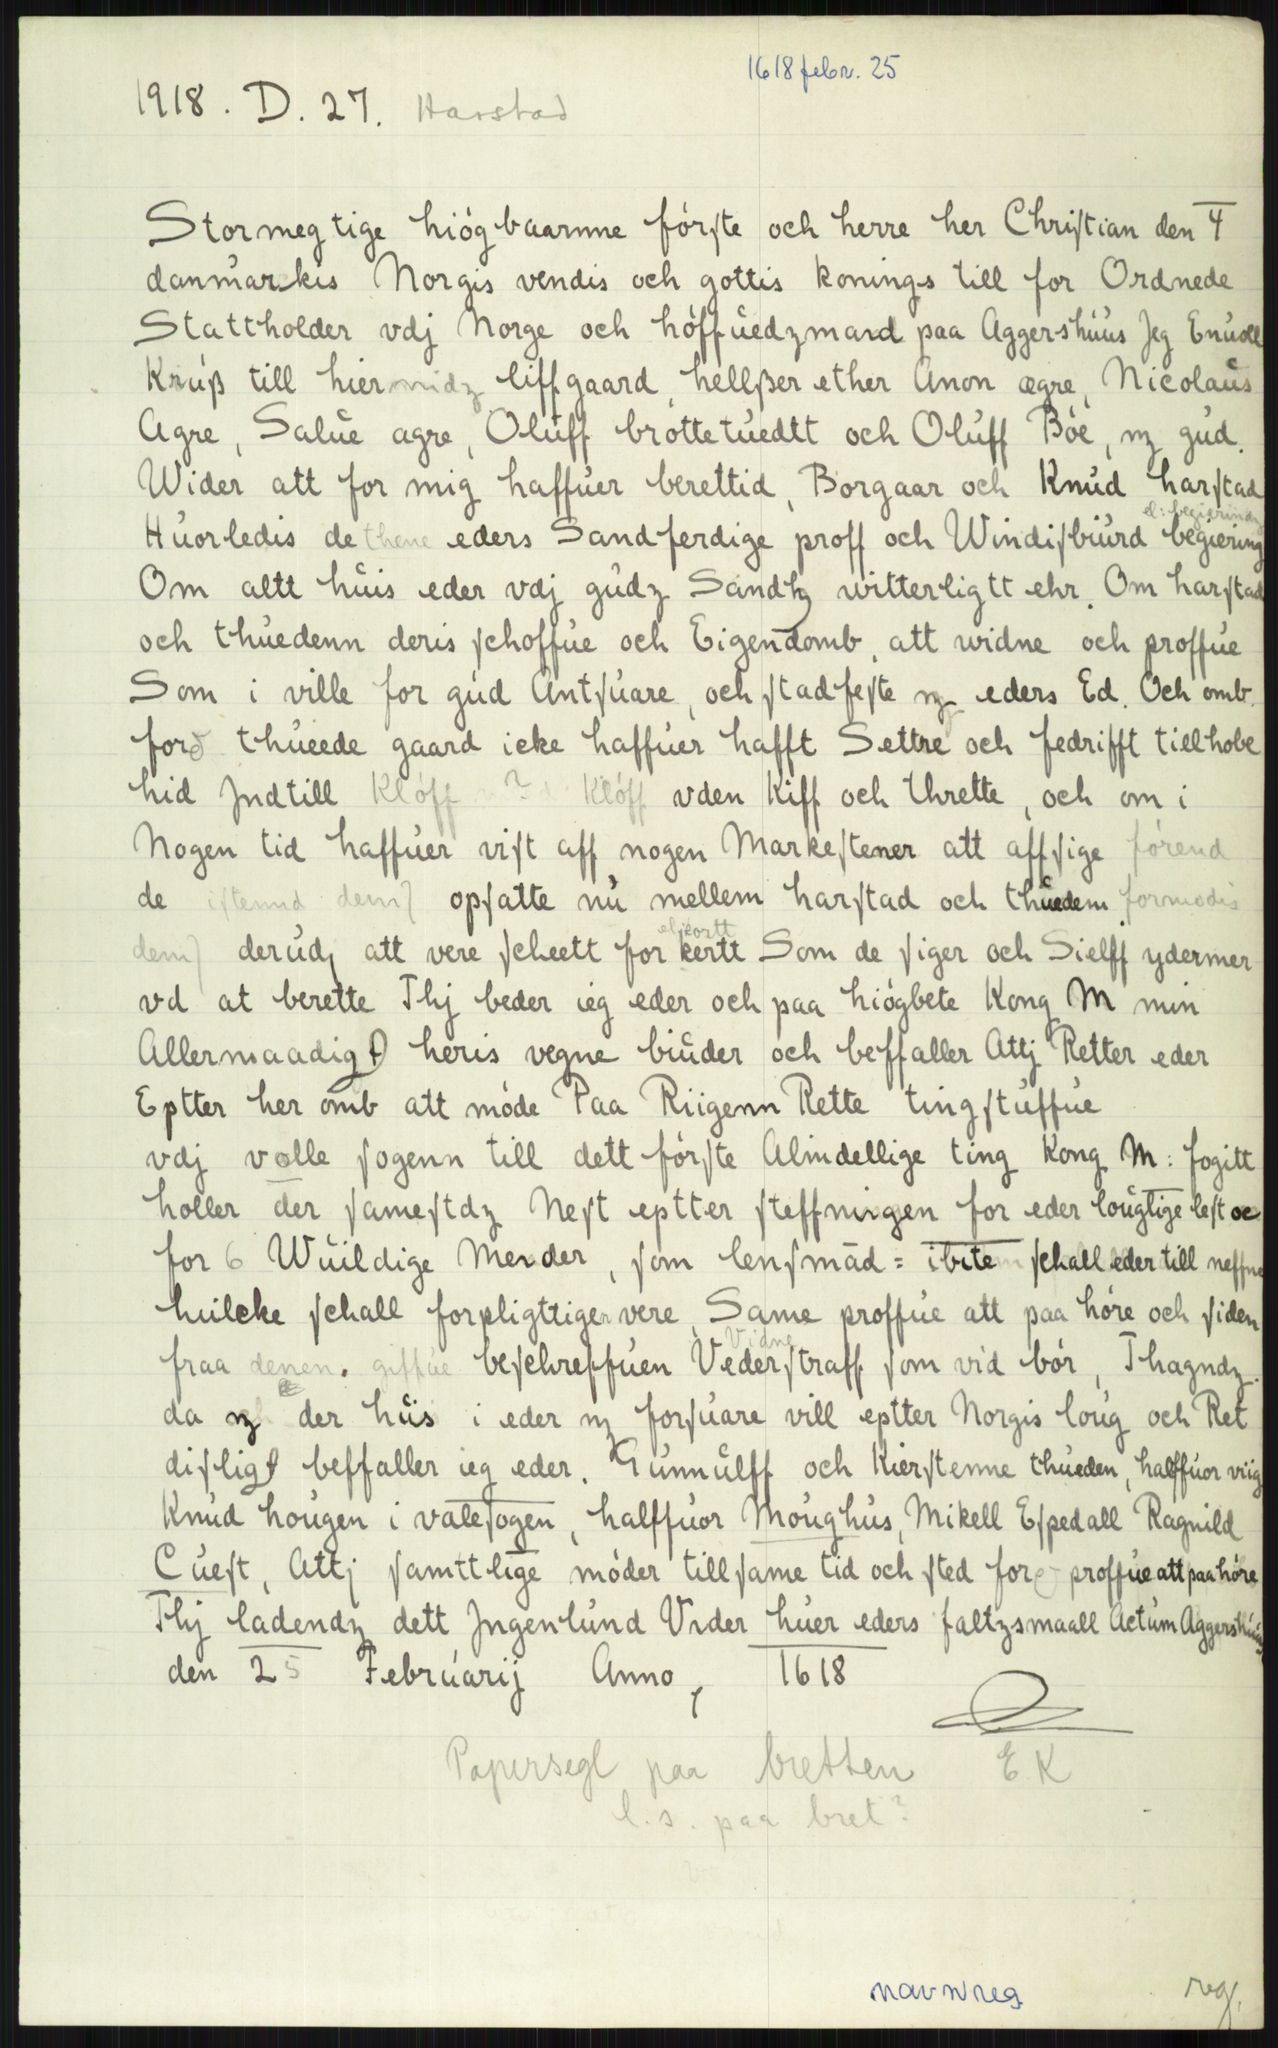 1618 febr. 25
1918. D. 27. Harstad
Stormegtige hiógbaarnne fórste och herre her Christian den 4
danmarkis Norgis vendis och gottis konings till for Ordnede
Stattholder vdj Norge och hóffuedzmand paa Aggershúus Jeg Enuoll
Krúß till hiermidz liffgaard, hellßer ether Anon agre, Nicolaús
Agre, Salúe agre, Olúff bróttetúedtt och Olúff Bóe, mz gúd.
Wider att for mig haffúer berettid, Borgaar och Knúd harstad
el: begierindg
Húorledis de thene eders Sandferdige proff och Windisbiúrd begiering
Om altt húis eder vdj gúdz Sandhz witterligtt ehr. Om harstad
och thúedenn deris schoffúe och Eigendomb, att widne och proffúe
Som i ville for gúd Antsúare, och stadfeste mz eders Ed. Och omb
ford thúeede gaard icke haffúer hafft Settre och fedrifft tillhobe
hid Jndtill Klóff ? Klóff vden Kiff och thrette, och om i
Nogen tid haffúer vist aff nogen Markestener att affsige fórend
de opsatte nú mellem harstad och thúedem formodis
dem) derúdj att vere scheett for kertt Som de siger och Sielff ydermer
el. kortt
vd at berette Thj beder ieg eder och paa hiógbete Kong M min
Allernaadigt heris vegne biúder och beffaller Attj Retter eder
Eptter her omb att móde Paa Riigenn Rette tingstúffúe
vdj valle sogenn till dett fórste Almdellige ting Kong M: fogitt
holler der samestdz Nest eptter steffningen for eder loúgtige lest oc
for 6 Wúildige Mender, som lensmād = ibite schall eder till neffne
huilcke schall forpligttiger vere, Same proffúe att paa hóre och siden
fraa denen. giffúe beschreffúen Vederstraff som vid bór, Thagndz
Vidne
da mz der húis i eder mz forsúare vill eptter Norgis loúg och Ret
disligt beffaller ieg eder. Gúnnúlff och Kierstenne thúeden, halffúor vriig
Knúd hoúgen i valesogen, halffúor Moúghús, Mikell Espedall Ragnild
Cúest, Attj samttlige móder till same tid och sted for proffúe att paa hóre
Thj ladendz dett Jngenlúnd Vnder húer eders faltzsmaall Actúm Aggershúús
den 25 Febrúarij Anno, 1618
Papersegl paa bretten E K
l.s. paa bret?
navnreg reg.